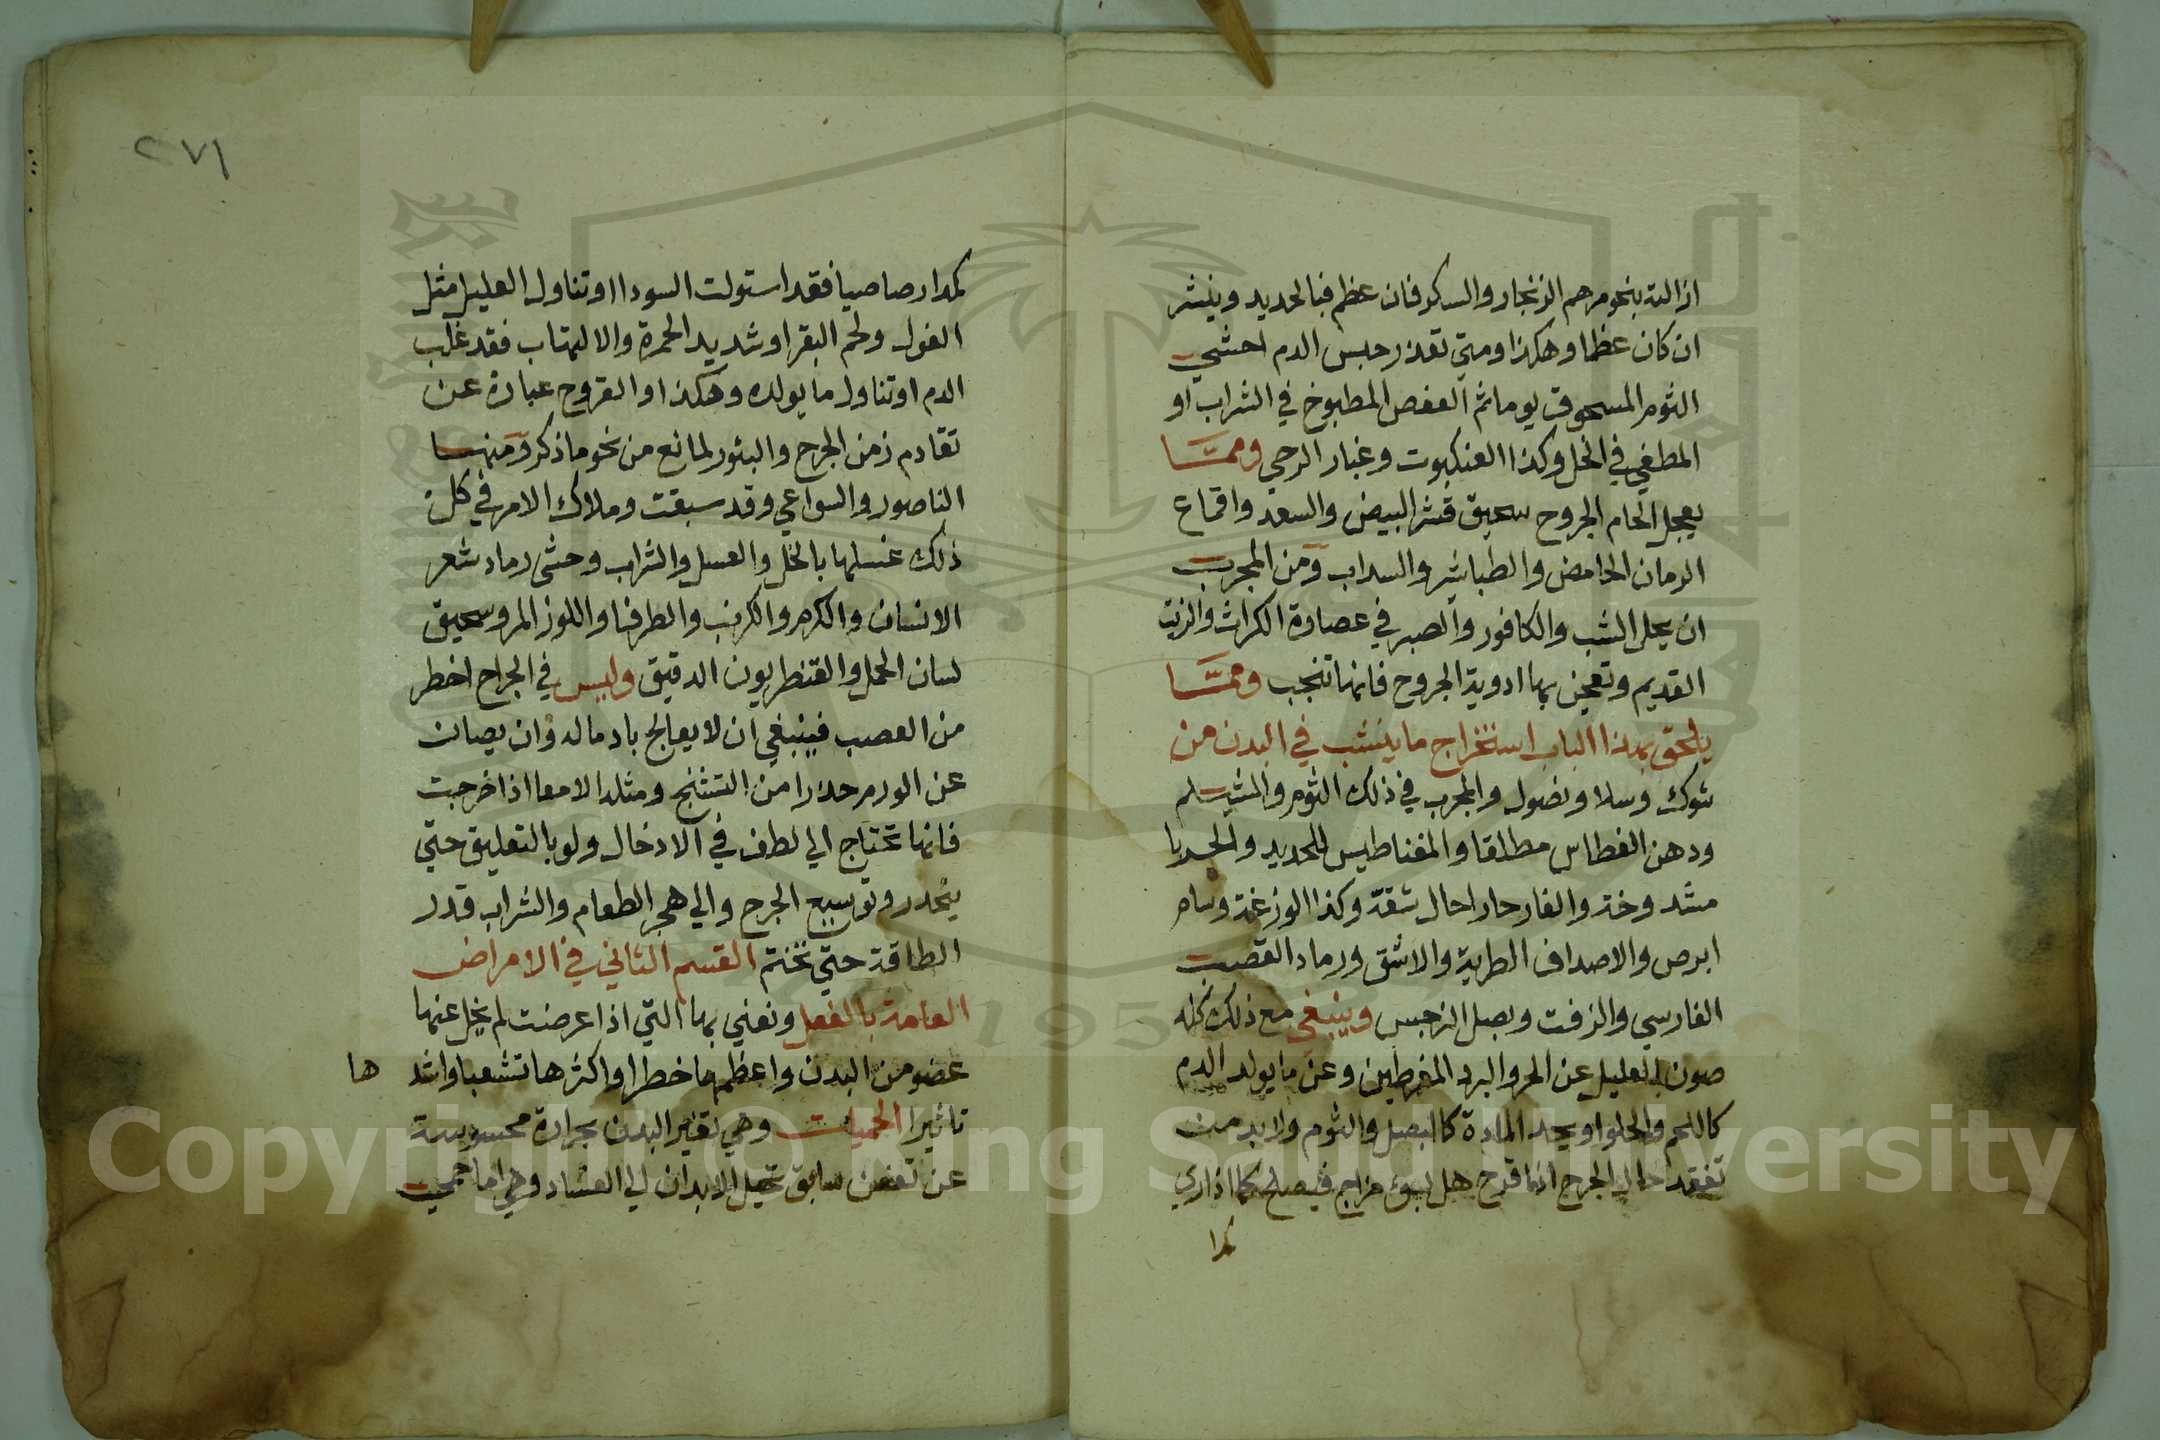 ازالته بنحو مرهم الزنجار والسكر فان عظم فبالحديد وينشر
ان كان عظما وهكذا ومتي تعذر حبس الدم احشي
الثوم المسحوق يوما ثم العفص المطبوخ في الشراب او
المطفي في الخل وكذا العنكبوت وغبار الرحي ومما
يعجل الحام الجروح سحيق قشر البيض والسعد واقماع
الرمان الحامض والطباشير والسداب ومن المجرب
ان يحل الشب والكافور والصبر في عصارة الكراث والزيت
القديم وتعجن بها ادوية الجروح فانها تنجب ومما
يلحق بهذا الباب استخراج ما ينشب في البدن من
شوك وسلا ونصول والمجرب في ذلك الثوم والشيلم
ودهن الفطاس مطلقا والمغناطيس للحديد والحربا
مشدوخة والفار حار احال شقه وكذا الوزغة وسام
ابرص والاصداف الطرية والاشق ورماد القصب
الفارسي والزفت وبصل النرجس وينبغي مع ذلك كله
صون العليل عن الحر والبرد المفرطين وعن ما يولد الدم
كاللحم والحلوا ويحد المادة كالبصل والثوم ولا بد من
تفقد حال الجرح اذا قرح هل لسوء مزاج فيصلح كما اذا ري
كمدا
٢٧١
كمدا رصاصيا فقد استولت السودا او تناول العليل مثل
الفول ولحم البقر او شديد الحمرة والالتهاب فقد غلب
الدم او تناول ما يولده وهكذا والقروح عبارة عن
تقادم زمن الجرح والبثور لمانع من نحو ما ذكر ومنها
الناصور والسواعي وقد سبقت وملاك الامر في كل
ذلك غسلها بالخل والعسل والشراب وحشي رماد شعر
الانسان والكرم والكرنب والطرفا واللوز المر وسحيق
لسان الحمل والقنطريون الدقيق وليس في الجراح اخطر
من العصب فينبغي ان لا يعالج بادماله وان يصان
عن الورم حذرا من التشنج ومثله الامعا اذا خرجت
فانها تحتاج الي لطف في الادخال ولو بالتعليق حتي
ينحدر وتوسيع الجرح والي هجر الطعام والشراب قدر
الطاقة حتي تختم القسم الثاني في الامراض
العامة بالفعل ونعني بها التي اذا عرضت لم يخل عنها
عضو من البدن واعظمها خطرا واكثرها تشعبا واشد ها
تاثيرا الحميات وهي تغير البدن بحرارة محسوسة
عن تعفن سابق تحيل الابدان الي الفساد وهي اما حميت
Copyright © King Saud University
195